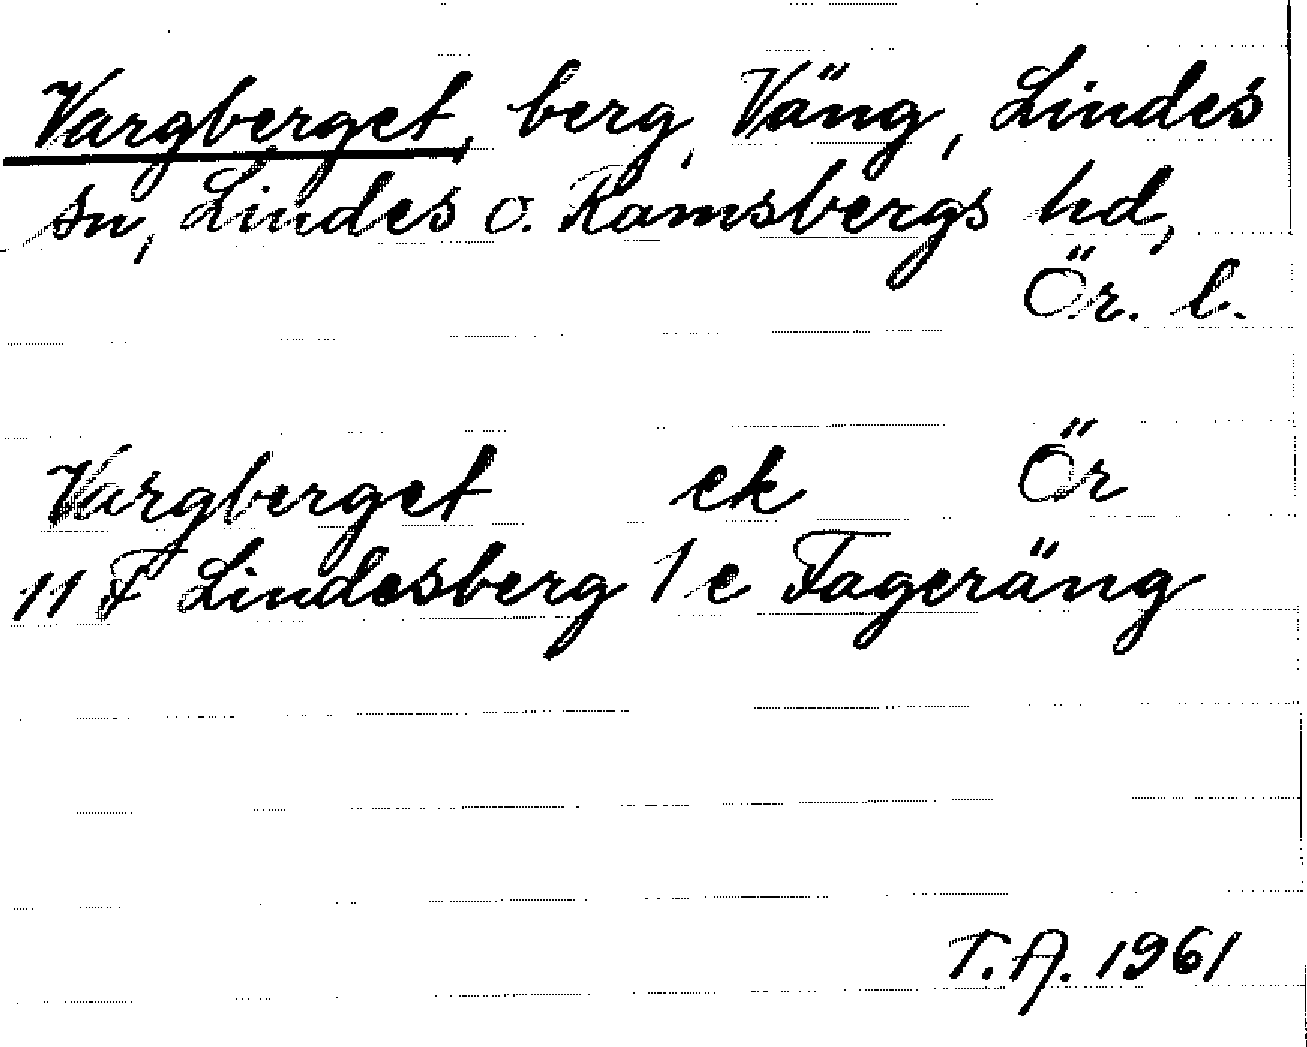 Vargberget, berg, Väng, Lindes
sn, Lindes o. Ramsbergs hd,
Ör. l.
Vargberget ek Ör
11 F Lindesberg 1 e Fageräng
T.A. 1961